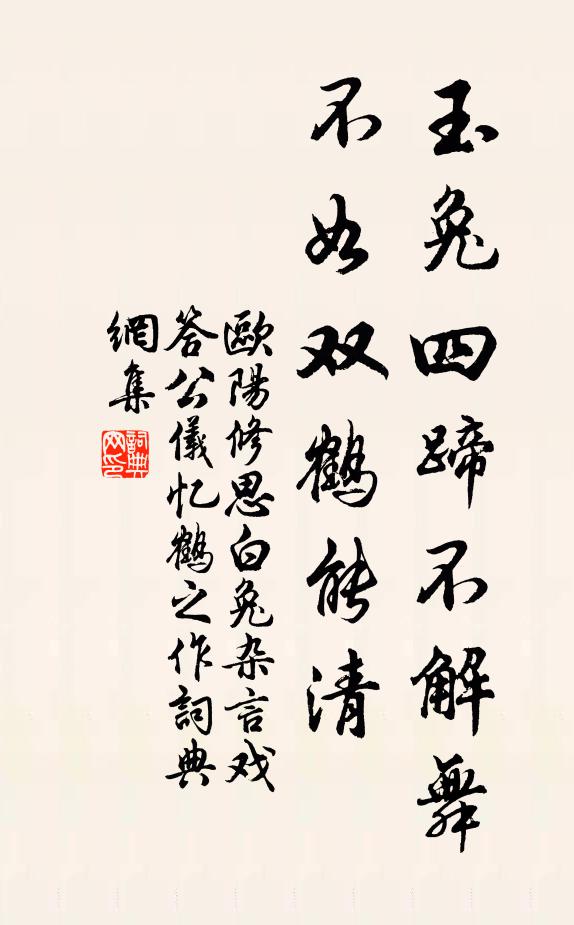 玉兔四蹄不解舞
不如双鹤能清
歐陽修思白兔杂言戏
答公儀忆鶴之作詞典
網集
詞典
网印